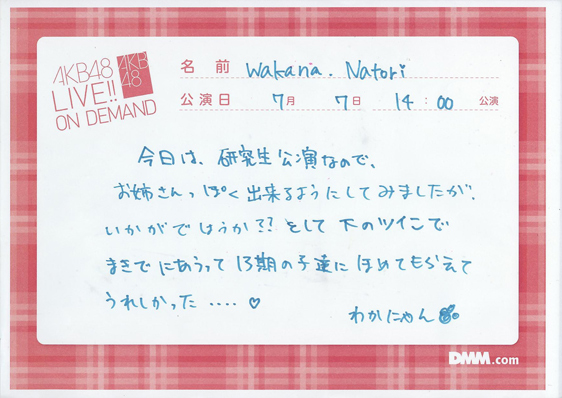 AKB48
LIVE!!
ON DEMAND
AKB
48
名前 Wakana. Natori
公演日 7月 7日 14:00 公演
今日は、研究生公演なので、
お姉さんっぽく出来るようにしてみましたが、
いかがでしょうか?? そして下のツインで
まきでにあうって13期の子達にほめてもらえて
うれしかった ‥‥ ♡
わかにゃん
DMM.com